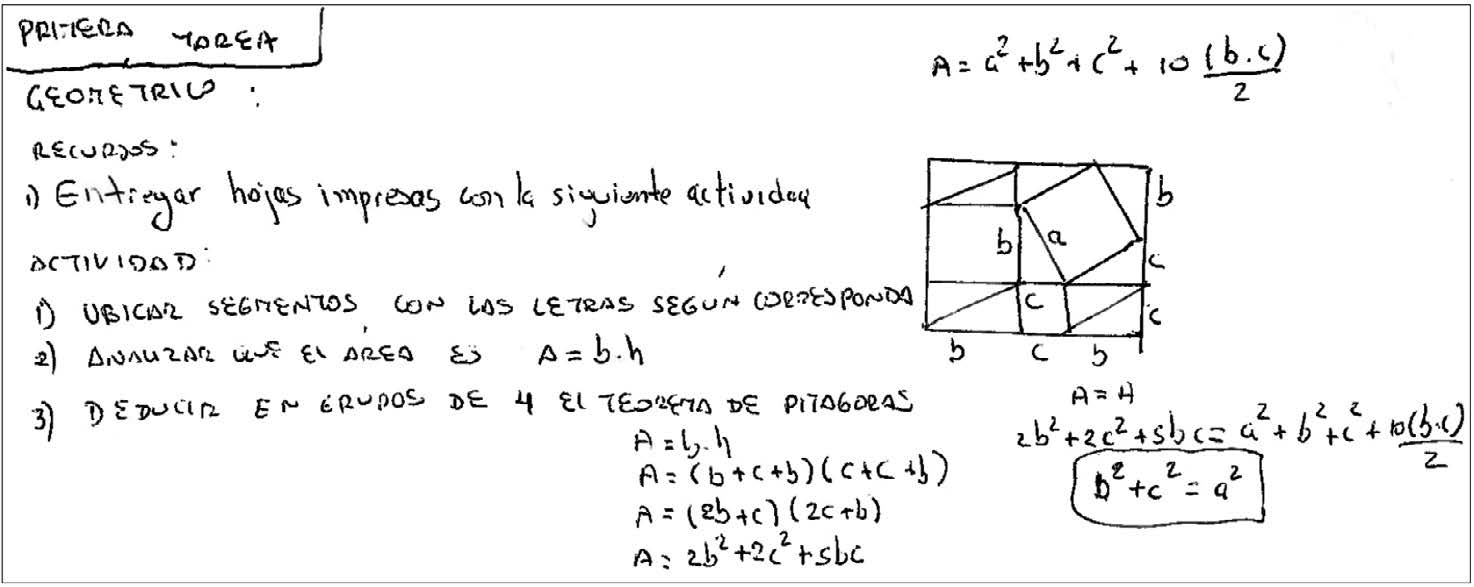 PRIMERA TAREA
GEOMETRICO :
RECURSOS:
1) Entregar hojas impresas con la siguiente actividad
ACTIVIDAD:
1) UBICAR SEGMENTOS CON LAS LETRAS SEGÚN CORRESPONDA
2) ANALIZAR QUE EL ÁREA ES A = b.h
3) DEDUCIR EN GRUPOS DE 4 El TEOREMA DE PITAGORAS
A = b.h
A = (b + c + b) (c + c + b)
A = (2b + c) (2c + b)
A = 2b² + 2c² + 5bc
A = a² + b² + c² + 10 (b.c)/2
b
b a
c
c
c
b c b
A = A
2b² + 2c² + 5bc = a² + b² + c² + 10(b.c)/2
b² + c² = a²